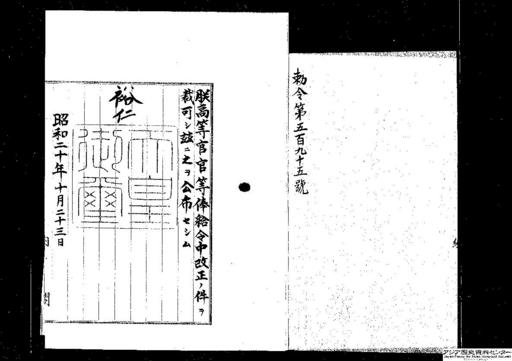 勅令第五百九十五號
朕高等官官等俸給令中改正ノ件ヲ
裁可シ玆ニ之ヲ公布セシム
裕仁
天皇
御璽
昭和二十年十月二十三日
内閣
アジア歴史資料センター